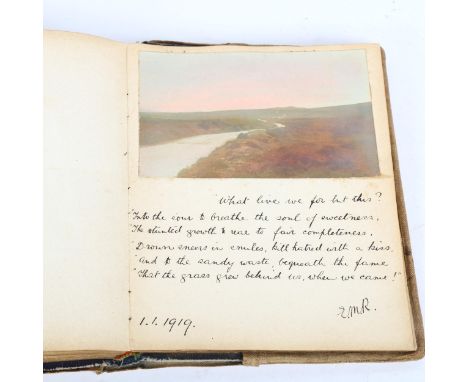 "What live we for but this?
"Into the sour to breathe the soul of sweetness,
"The stunted growth to rear to fair completeness,
"Drown sneers in smiles, kill hatred with a kiss,
"And to the sandy waste bequeath the fame
"That the grass grew behind us, when we came!"
E.M.R.
1.1.1919.